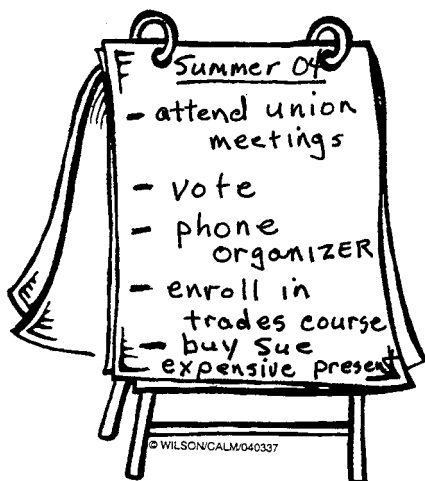 Summer 04
- attend union
meetings
- vote
- phone
ORGANIZER
- enroll in
trades course
- buy Sue
expensive present
© WILSON/CALM/040337